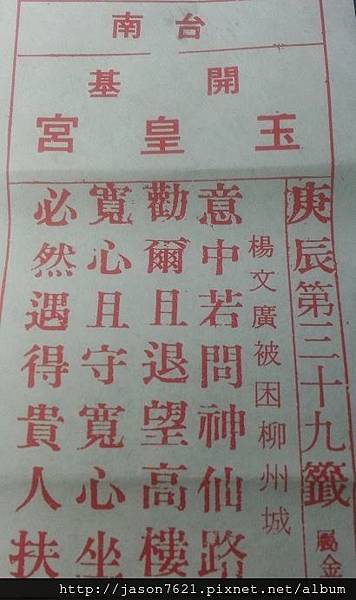 台南
開基
玉皇宮
庚辰第三十九籤 屬金
楊文廣被困柳州城
意中若問神仙路
勸爾且退望高樓
寬心且守寬心坐
必然遇得貴人扶
http://jason7621.pixnet.net/album